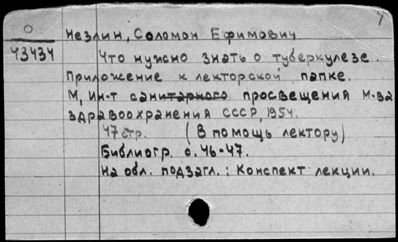 О Незлин, Соломон Ефимович
43434 Что нужно знать о туберкулезе.
Приложение к лекторской папке.
М, Ин-т санитарного просвещения М-ва
здравоохранения СССР, 1954.
47 стр. (В помощь лектору)
Библиогр. с. 46-47.
На обл. подзагл.: Конспект лекции.